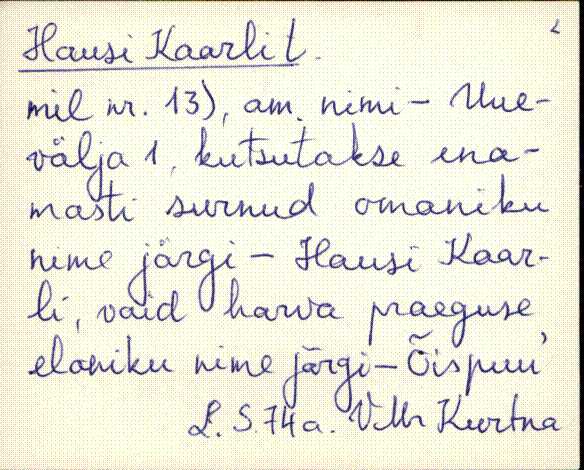 2
Hausi Kaarli t.
mil nr. 13), am. nimi – Uue-
välja 1, kutsutakse ena-
masti surnud omaniku
nime järgi – Hausi Kaar-
li, vaid harva praeguse
elaniku nime järgi – Õispuu
L. S. 74a. VMr Kurtna